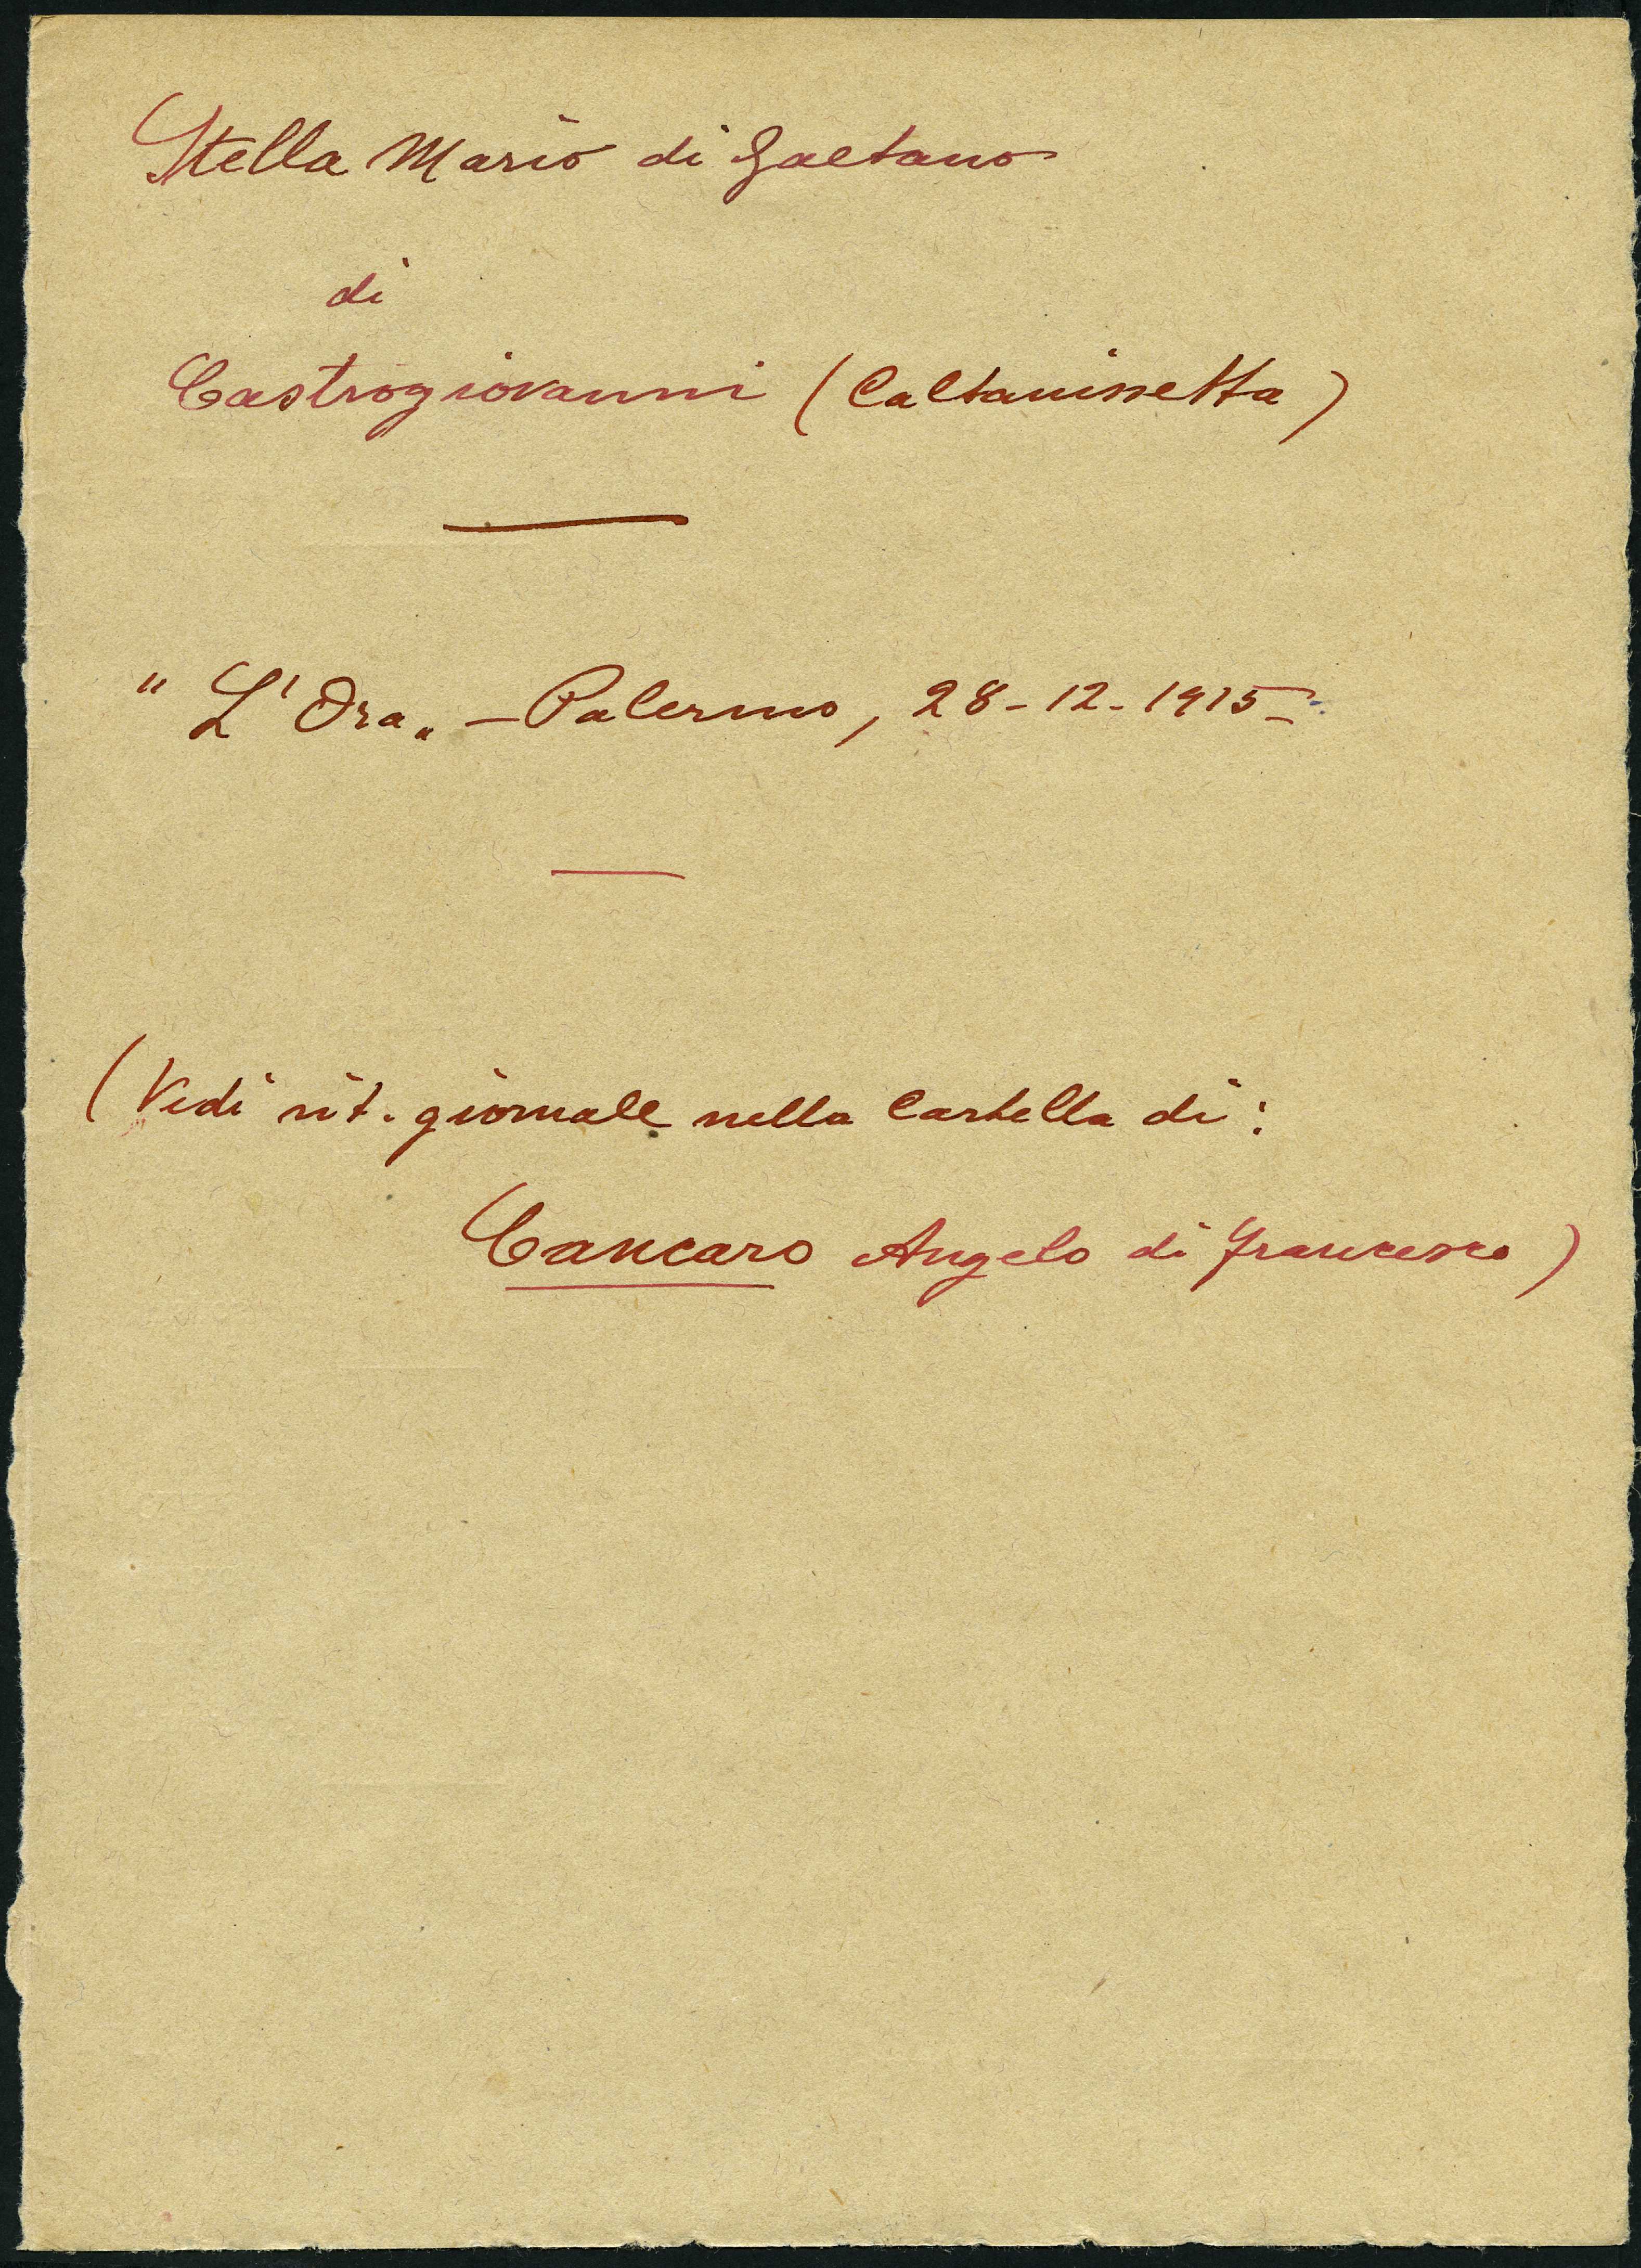 Stella Mario di Gaetano
di
Castrogiovanni (Caltanissetta)
"L'Ora„ - Palermo, 28-12-1915-
(Vedi rit. giornale nella Cartella di:
Cancaro Angelo di Francesco)